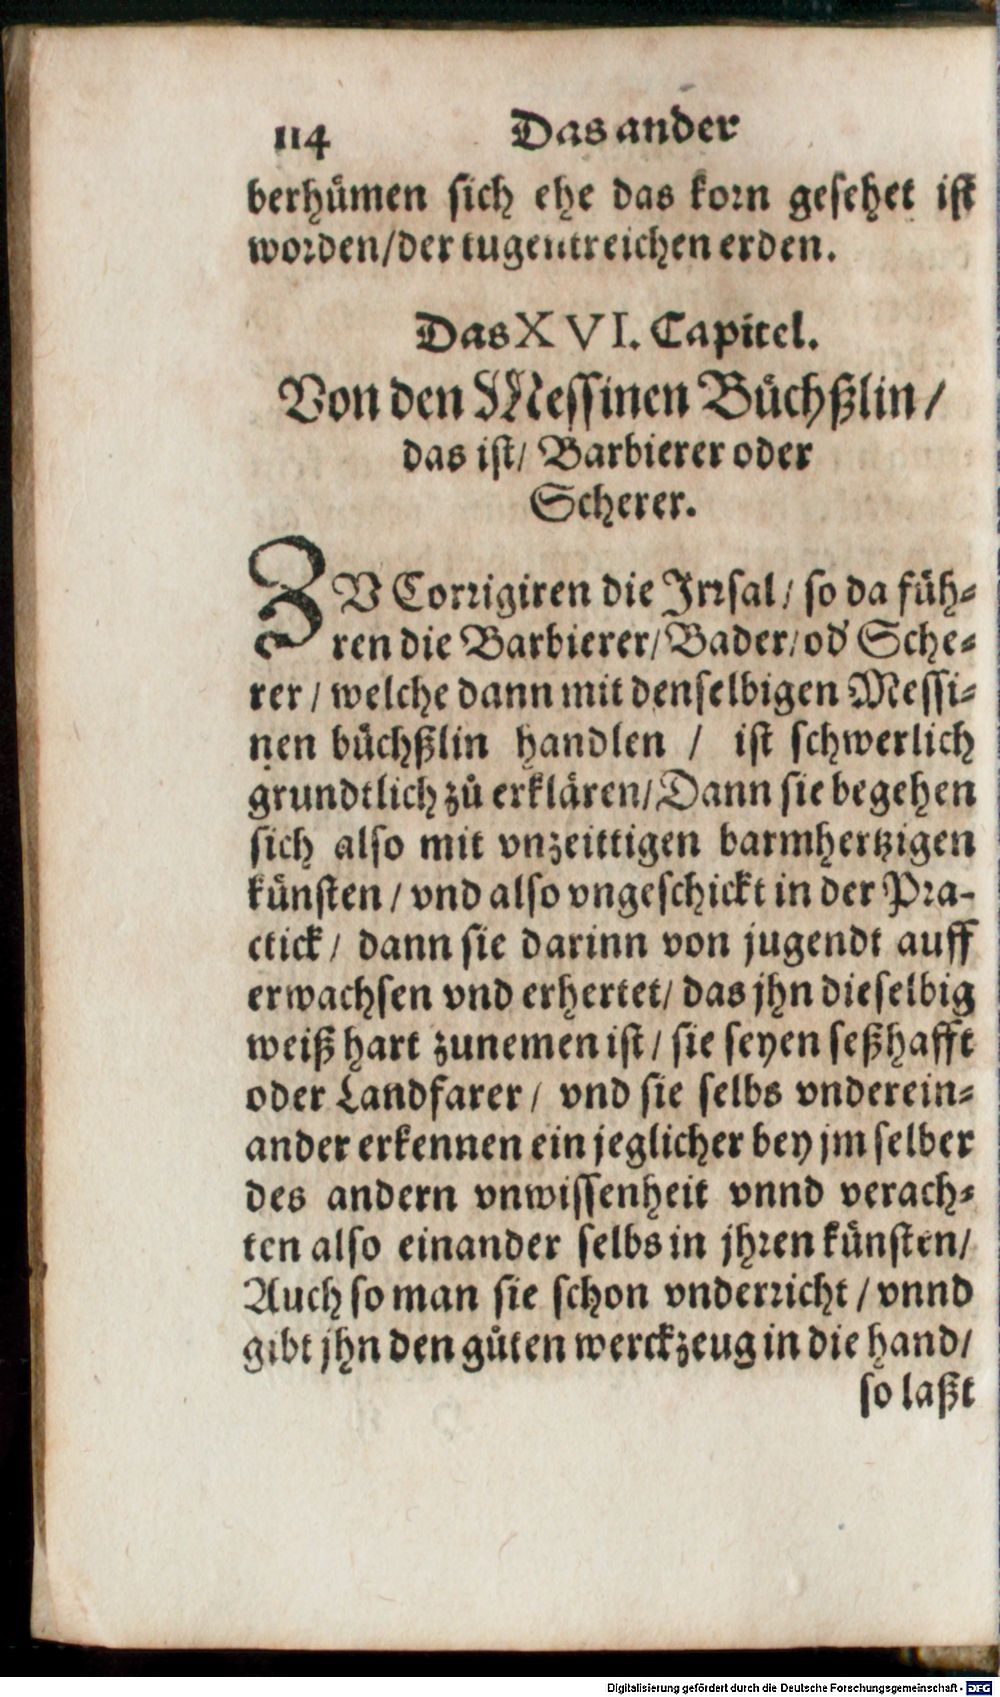 114 Das ander
berhümen sich ehe das korn gesehet ist
worden/der tugentreichen erden.
Das XVI. Capitel.
Von den Messinen Büchßlin/
das ist/ Barbierer oder
Scherer.
ZV Corrigiren die Irrsal/ so da füh-
ren die Barbierer/Bader/od' Sche-
rer/welche dann mit denselbigen Messi-
nen büchßlin handlen / ist schwerlich
grundtlich zů erklären/Dann sie begehen
sich also mit vnzeittigen barmhertzigen
künsten/vnd also vngeschickt in der Pra-
ctick/ dann sie darinn von jugendt auff
erwachsen vnd erhertet/das jhn dieselbig
weiß hart zunemen ist/sie seyen seßhafft
oder Landfarer/ vnd sie selbs vnderein-
ander erkennen ein jeglicher bey jm selber
des andern vnwissenheit vnnd verach-
ten also einander selbs in jhren künsten/
Auch so man sie schon vnderricht/vnnd
gibt jhn den gůten werckzeug in die hand/
so laßt
Digitalisierung gefördert durch die Deutsche Forschungsgemeinschaft - DFG